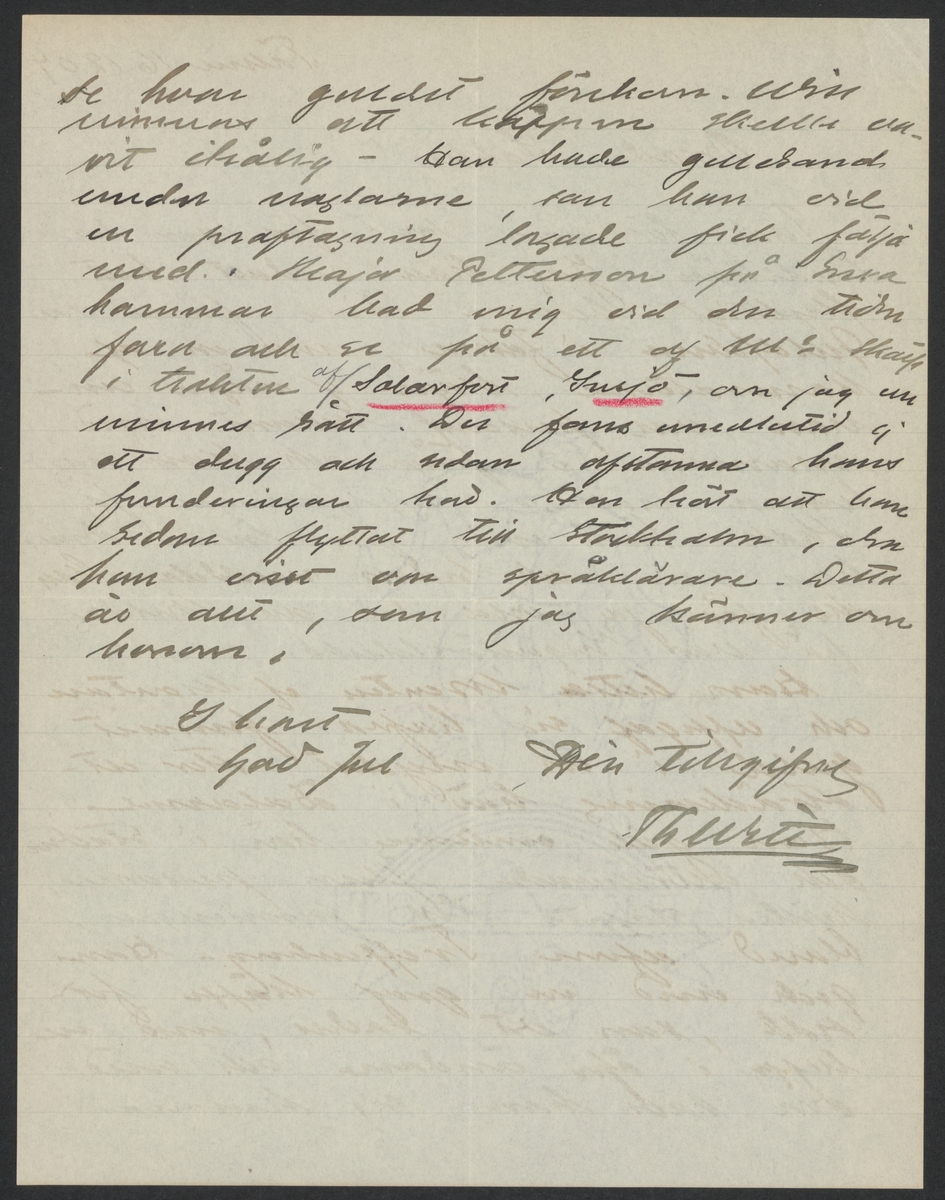 se hvar guldet förekom. Vill
minnas att käppen skulle va-
rit ihålig - Han hade guldsand
under naglarne, som han vid
en proftagning lagade fick följa
med. Major Petterson på
hammar bad mig vid den tiden
fara och se på ett af Mc
i trakten af/ Solarfort, Insjö, om jag nu
minnes rätt. Det fans emellertid ej
ett dugg och sedan afstanna hans
funderingar här. Har hört att han
sedan flyttat till Stockholm, der
han visst var språklärare. Detta
är allt, som jag känner om
honom.
I hast
God Jul Din Tillgifne
Th Witt